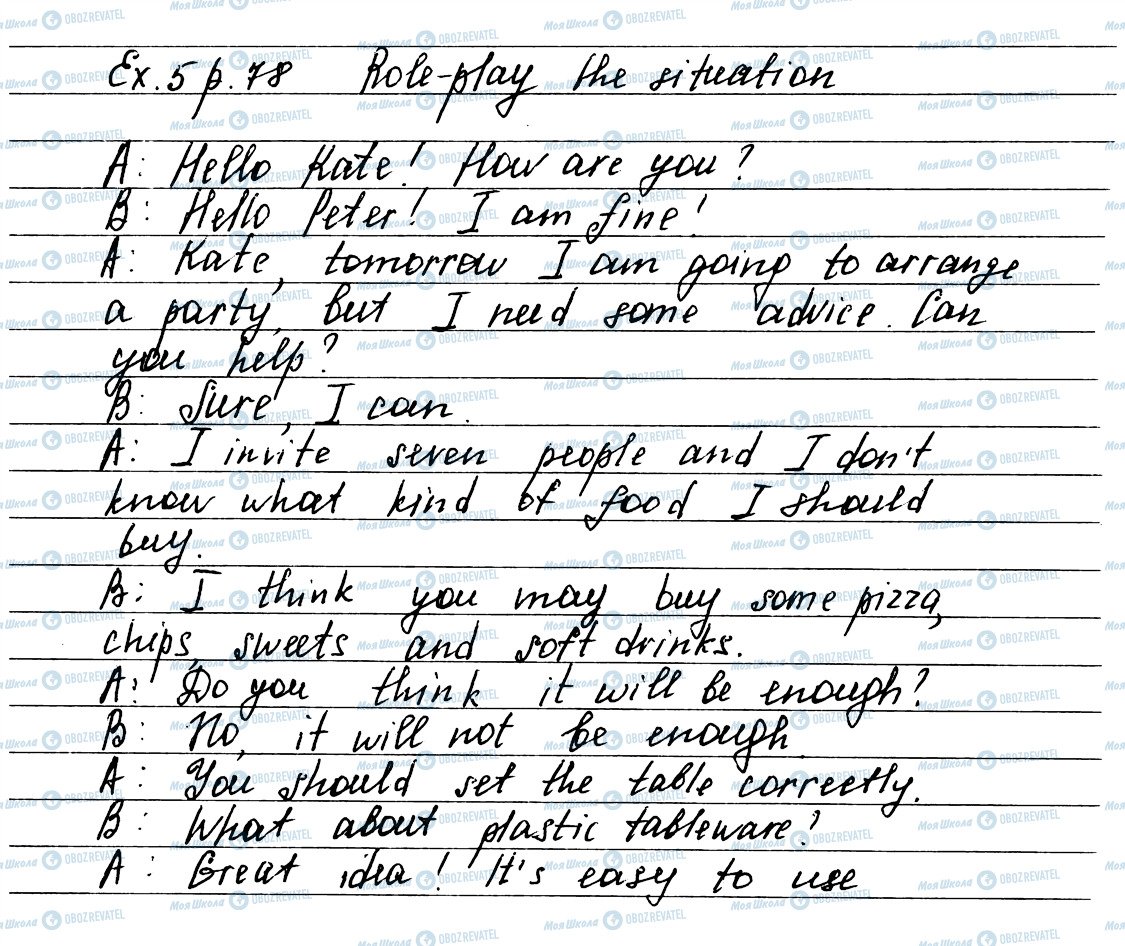 Ex. 5 p. 78 Role-play the situation
A: Hello Kate! How are you?
B: Hello Peter! I am fine!
A: Kate, tomorrow I am going to arrange
a party, but I need some advice. Can
you help?
B: Sure, I can.
A: I invite seven people and I don't
know what kind of food I should
buy.
B: I think you may buy some pizza,
chips, sweets and soft drinks.
A: Do you think it will be enough?
B: No, it will not be enough.
A: You should set the table correctly.
B: What about plastic tableware?
A: Great idea! It's easy to use
Моя Школа OBOZREVATEL